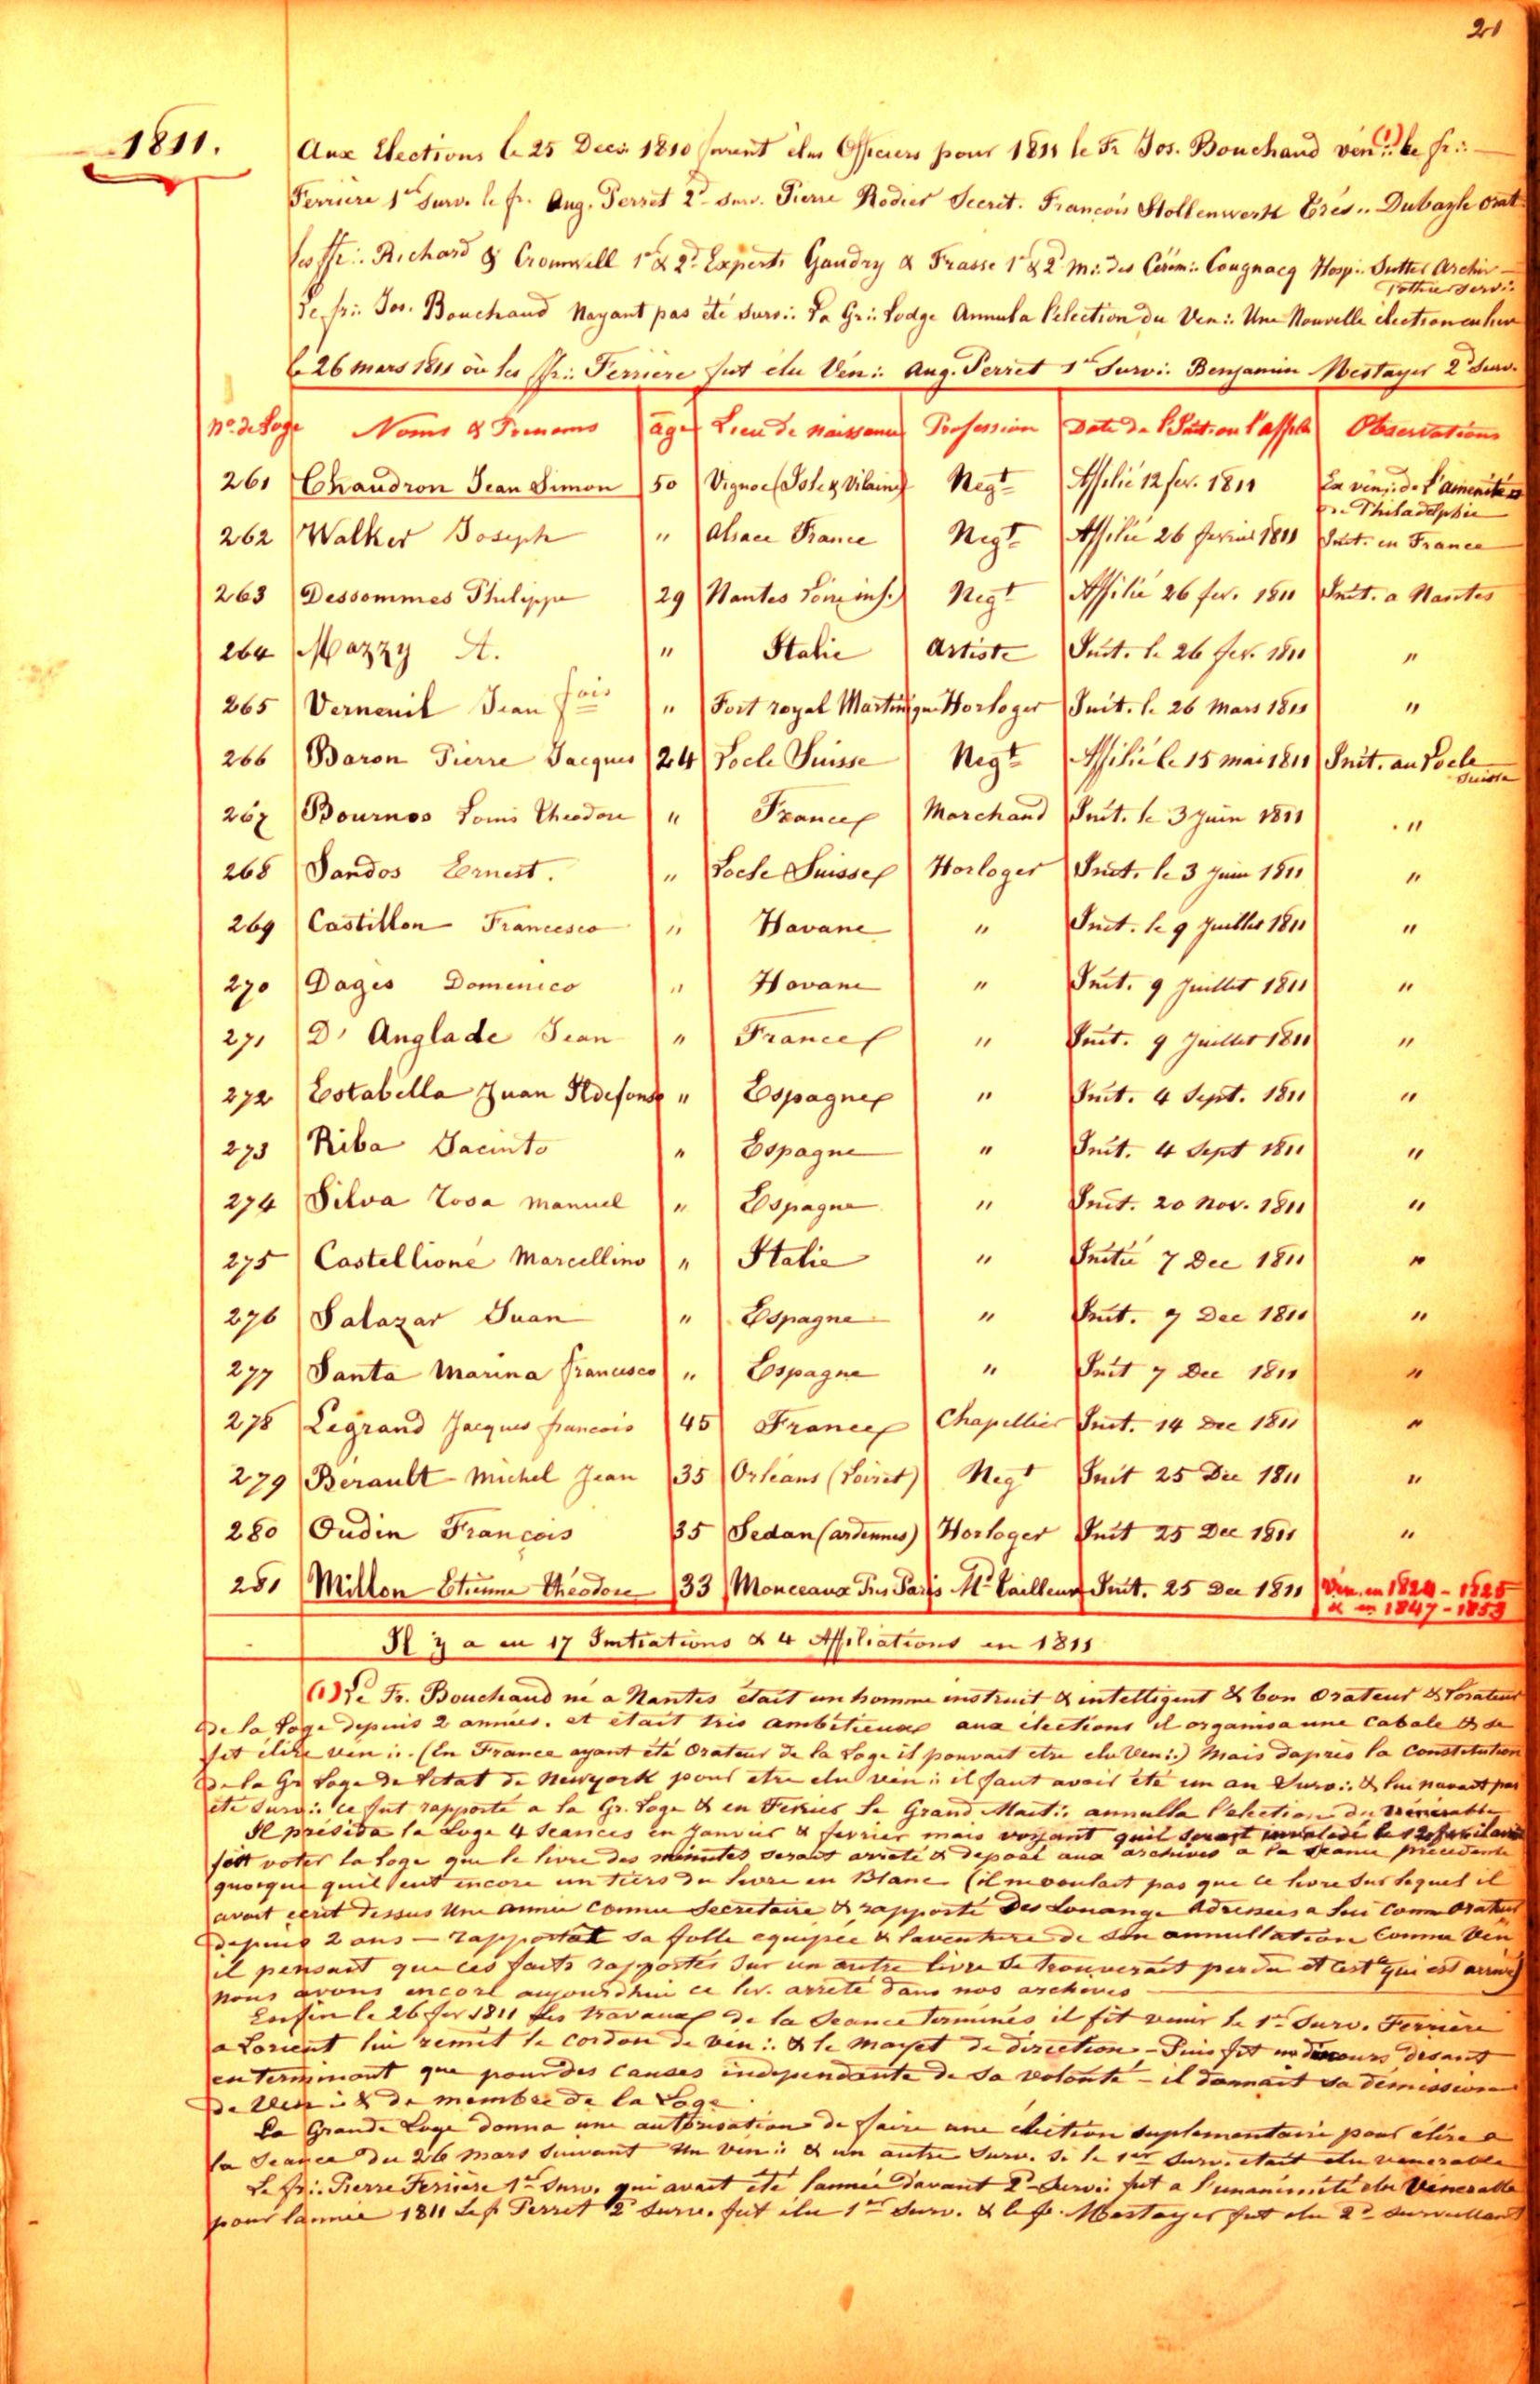 21
1811.
Aux Elections le 25 Dec: 1810 furent élus Officiers pour 1811 le Fr Jos. Bouchaud vén∴ (1) le fr∴
Ferriere 1er Surv. le fr. Aug. Perret 2d Surv. Pierre Rodier Secret. François Stollenwerk Trés∴ Dubayle Orat
les ffr∴ Richard & Cromwell 1er & 2d Experts Gaudry & Frasse 1r & 2 M∴ des Cérém∴ Cougnacq Hosp∴ Sutter Archiv
Pothier Serv∴
Le fr∴ Jos. Bouchaud Nayant pas été Surv∴ La Gr∴ Lodge Annula l'election du Ven∴ Une Nouvelle élection eu lieu
le 26 mars 1811 où les ffr∴ Ferriere fut élu Vén∴ Aug. Perret 1er Surv∴ Benjamin Mestayer 2d Surv.
No. de Loge Noms & Prenoms age Lieu de naissance Profession Date de l'Init. ou l'affil. Observations
261 Chaudron Jean Simon 50 Vignoc (Isle & Vilaine) Negt Affilié 12 fev. 1811 Ex vén∴ de l'amenité
de Philadelphie
262 Walker Joseph " Alsace France Negt Affilié 26 fevrier 1811 Init. en France
263 Dessommes Philippe 29 Nantes Loire inf.) Negt Affilié 26 fev. 1811 Init. a Nantes
264 Mazzy A. " Italie Artiste Init. le 26 fev. 1811 "
265 Verneuil Jean fois " Fort royal Martinique Horloger Init. le 26 Mars 1811 "
266 Baron Pierre Jacques 24 Locle Suisse Negt Affilié le 15 mai 1811 Init. au Locle
Suisse
267 Bournos Louis Theodore " France Marchand Init. le 3 Juin 1811 "
268 Sandos Ernest. " Locle Suisse Horloger Init. le 3 Juin 1811 "
269 Castillon Francesco " Havane " Init. le 9 Juillet 1811 "
270 Dagès Domenico " Havane " Init. 9 Juillet 1811 "
271 D'Anglade Jean " France " Init. 9 Juillet 1811 "
272 Estabella Juan Ildefonse " Espagne " Init. 4 Sept. 1811 "
273 Riba Jacinto " Espagne " Init. 4 Sept 1811 "
274 Silva Tosa Manuel " Espagne " Init. 20 Nov. 1811 "
275 Castellioné Marcellino " Italie " Initié 7 Dec 1811 "
276 Salazar Juan " Espagne " Init. 7 Dec 1811 "
277 Santa Marina francisco " Espagne " Init 7 Dec 1811 "
278 Legrand Jacques francois 45 France Chapellier Init. 14 Dec 1811 "
279 Bérault Michel Jean 35 Orléans (Loiret) Negt Init 25 Dec 1811 "
280 Oudin François 35 Sedan (ardennes) Horloger Init 25 Dec 1811 "
281 Millon Etienne Théodore 33 Monceaux Près Paris Md Tailleur Init. 25 Dec 1811 Ven. en 1824 - 1825
& en 1847 - 1853
Il y a eu 17 Initiations & 4 Affiliations en 1811
(1) Le Fr. Bouchaud né a Nantes était un homme instruit & intelligent & bon Orateur & l'orateur
de la Loge depuis 2 années. et était tris ambitieux aux élections il organisa une Cabale & se
fit élire vén∴. (En France ayant été Orateur de la Loge il pouvait etre elu Ven∴) Mais daprès la Constitution
de la Gr Loge de l'etat de Newyork pour etre elu vén∴ il faut avoir été un an Surv∴ & lui navait pas
été Surv∴ ce fut rapporté a la Gr. Loge & en Fevrier le Grand Maitr∴ annulla l'election du vénérable
Il présida la Loge 4 Seances en Janvier & fevrier mais voyant quil serait invalidé le 12 fev. il avait
fait voter la loge que le livre des minutes serait arreté & deposé aux archives a la Seance précédente
quoique quil eut encore un tiers du livre en Blanc (il ne voulait pas que ce livre sur lequel il
avait écrit dessus Une année comme Secretaire & rapporté Des Louange Adressées a lui comme Orateur
depuis 2 ans — rapportat sa folle equipée & laventure de son annullation comme Ven
il pensait que ces faits rapportés sur un autre livre se trouverait perdu et c'est ce qui est arrivé)
Nous avons encore aujourdhui ce liv. arreté dans nos archives
Enfin le 26 fev 1811 les travaux de la Seance Terminés il fit venir le 1er Surv. Ferrière
a Lorient lui remit le cordon de vén∴ & le Mayet de direction - Puis fit un discours disant
en terminant que pour des Causes independante de sa volonté - il donnait sa démission
De Ven∴ & de membre de la Loge
La Grande Loge donna une autorisation de faire une élection suplementaire pour élire a
la Seance du 26 Mars suivant un vén∴ & un autre Surv. si le 1er Surv. était élu venerable
Le fr∴ Pierre Ferriere 1er Surv. qui avait été lannée davant 2d Surv∴ fut a l'unanimité élu Vénérable
pour lannée 1811 Le fr Perret 2d Surv. fut élu 1er Surv. & le fr. Mestayer fut élu 2d Surveillant